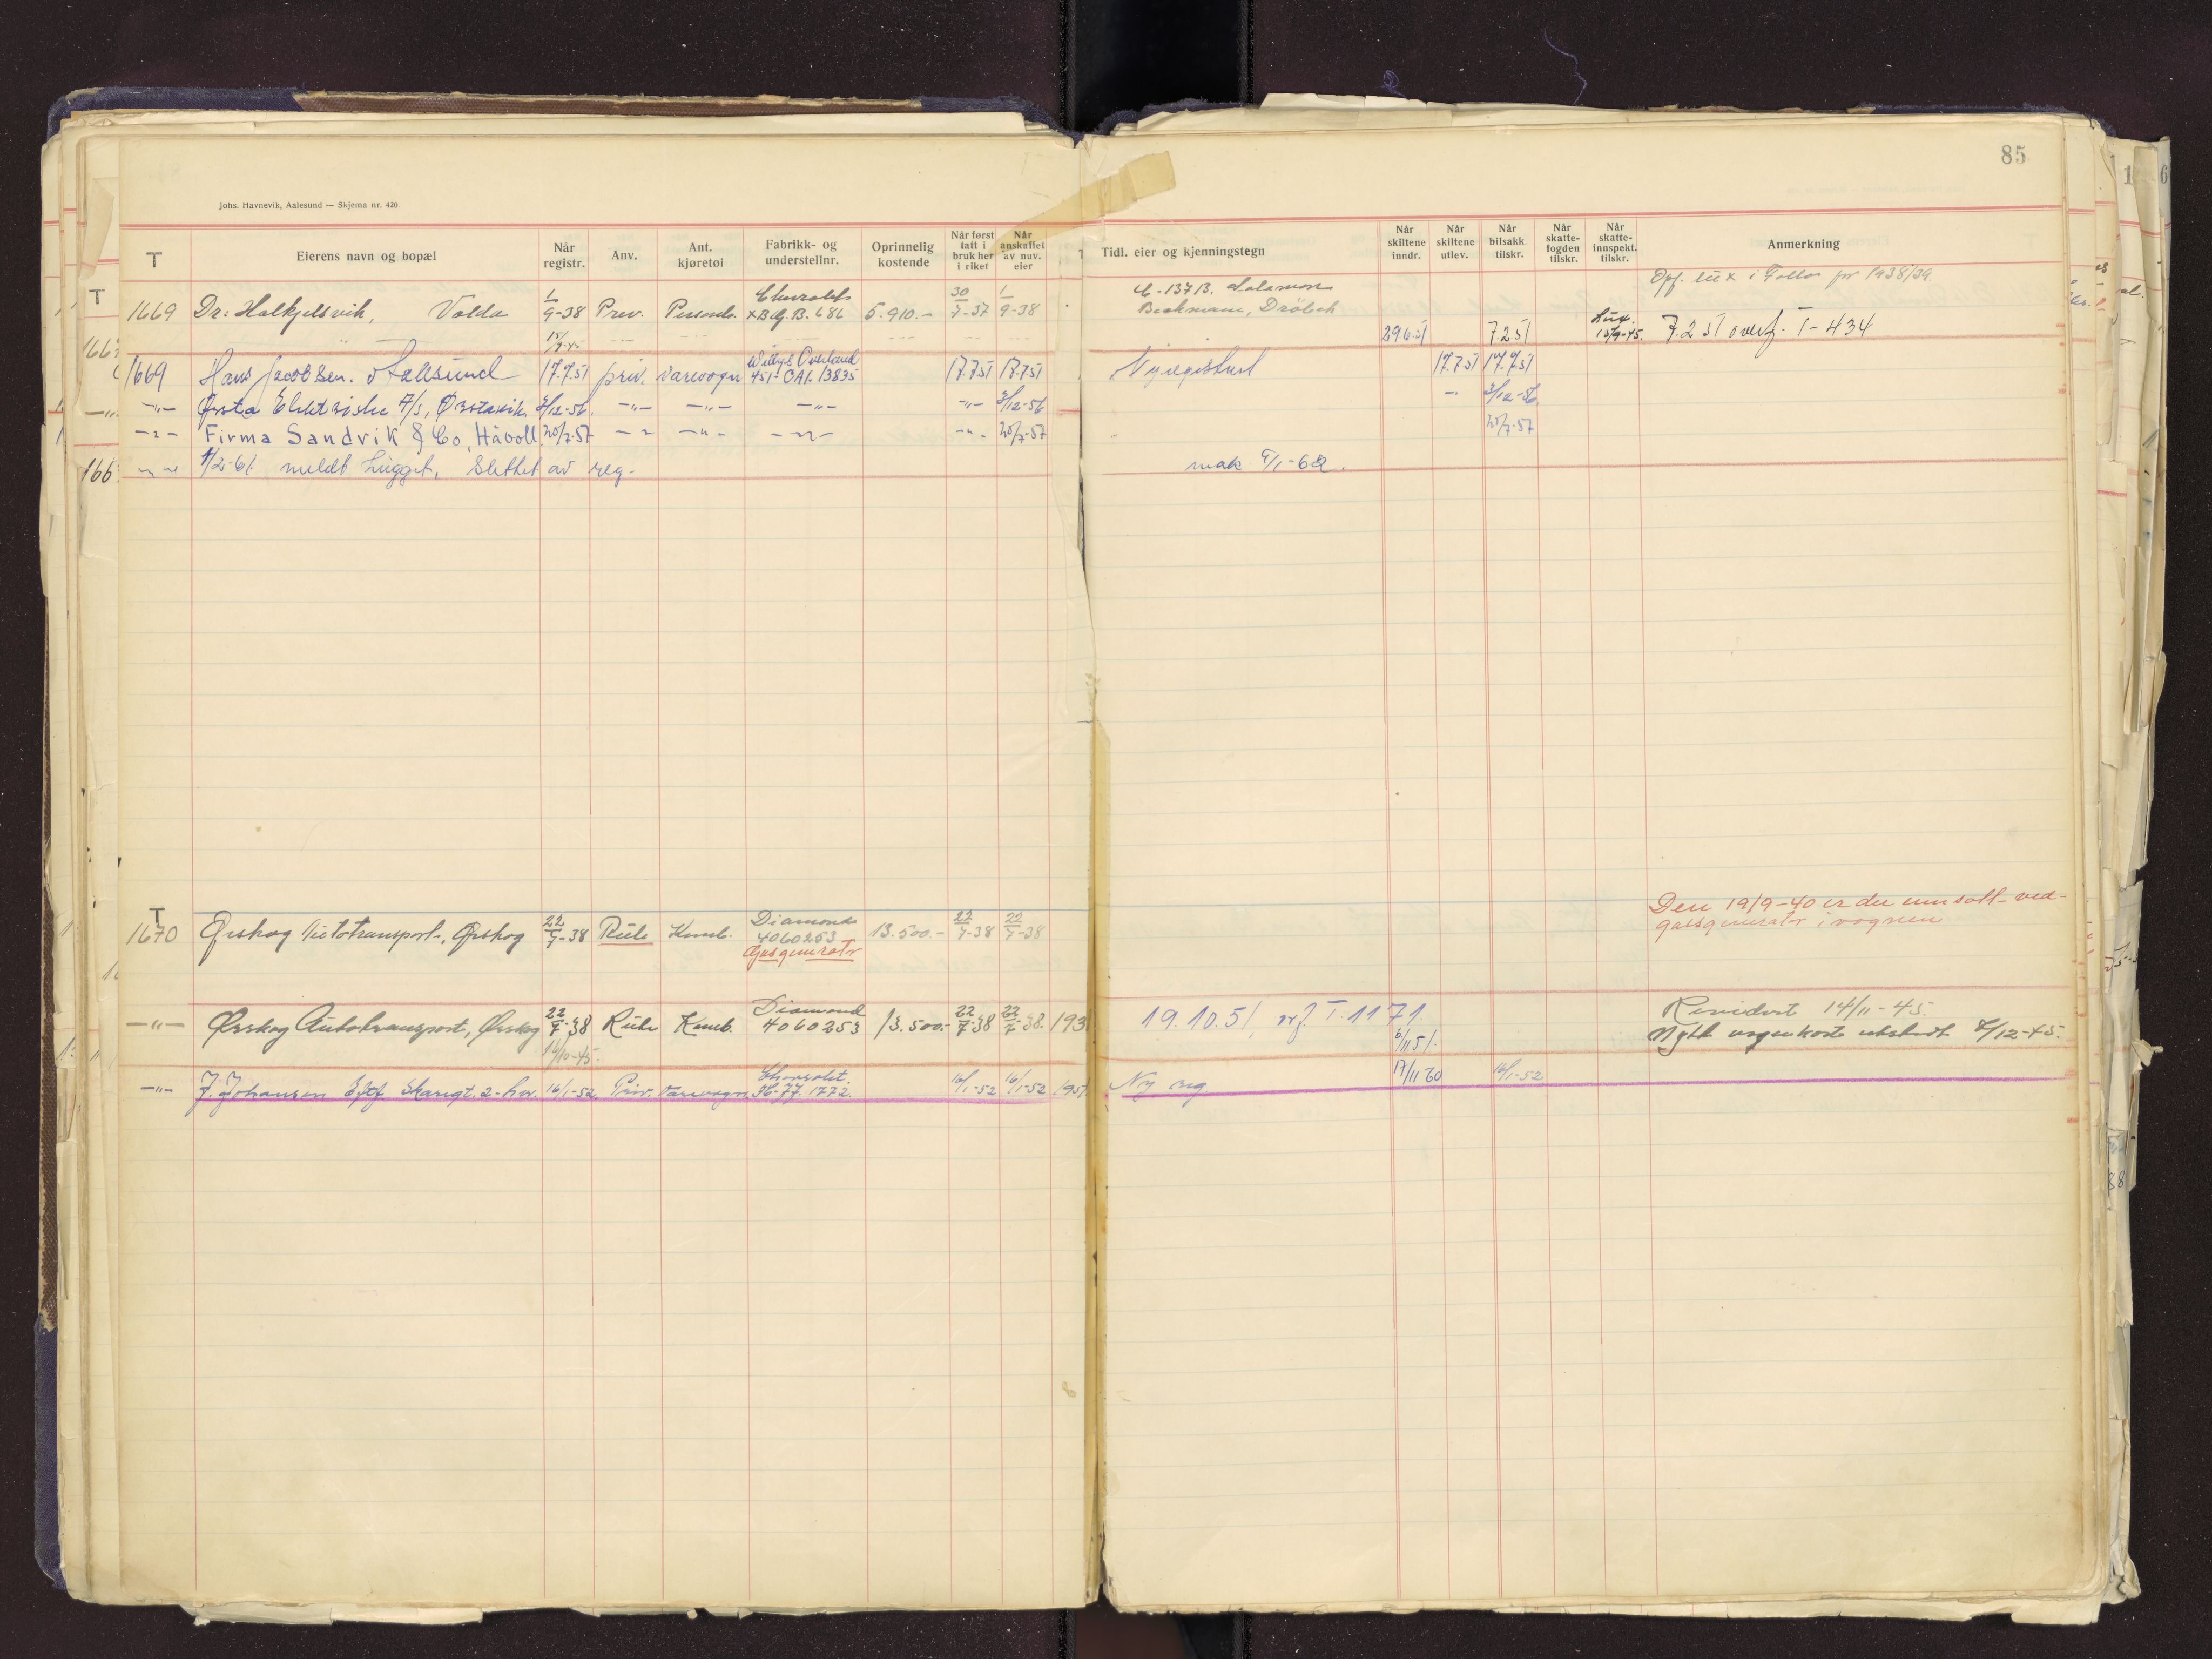 85
Johs. Havnevik, Aalesund — Skjema nr. 420
T | Eierens navn og bopæl | Når registr. | Anv. | Ant. kjøretøi | Fabrikk- og understellnr. | Oprinnelig kostende | Når først tatt i bruk her i riket | Når anskaffet av nuv. eier | Tidl. eier og kjenningstegn | Når skiltene inndr. | Når skiltene utlev. | Når bilsakk. tilskr. | Når skatte-fogden tilskr. | Når skatte-innspekt. tilskr. | Anmerkning
T 1669 Dr. Halkjelsvik, Volda 1/9-38 Priv. Personb. Chevrolet 5.910.- 30/7-37 1/9-38 C-137B. Salamon Opf. lux i Follo for 1938/39
15/9-45 Beckmann, Drøbak 29.6.51 7.2.51 Lux. 13/9-45. 7.2 51 overf. T-434
1669 Hans Jacobsen. Aalesund 17.7.51 priv. varevogn Willys Overland 451-CA1. 13835 17.7.51 17.7.51 Nyregistrert 17.7.51 17.7.51
-"- Ørsta Elektriske A/s, Ørstavik. 3/12-56. -"- -"- -"- -"- 3/12-56 -"- 3/12-56
-"- Firma Sandvik & Co, Håvoll 20/7-57 -"- -"- -"- -"- 20/7-57 20/7-57
-"- 1/2-61. meldt hugget, slettet av reg. mak 9/1-62.
Den 19/9-40 er der innsatt ved-
T 1670 Ørskog Autotransport, Ørskog 22/7-38 Rute Komb. Diamond 4060253 13.500.- 22/7-38 22/7-38 gassgenerator i vognen
Gassgenerator
-"- Ørskog Autotransport, Ørskog 22/7-38 Rute Komb. Diamond 4060253 13.500.- 22/7-38 22/7-38. 193 19.10.51, T.1171. 6/11.51. Revidert 14/11-45.
16/10-45. Nytt vognkort utstedt 4/12-45.
-"- J. Johansen Eftf. Skarigt. 2- 16/1-52 Priv. Varevogn. Chevrolet. 1772. 16/1-52 16/1-52 1951 Ny reg. 17/11 60 16/1-52